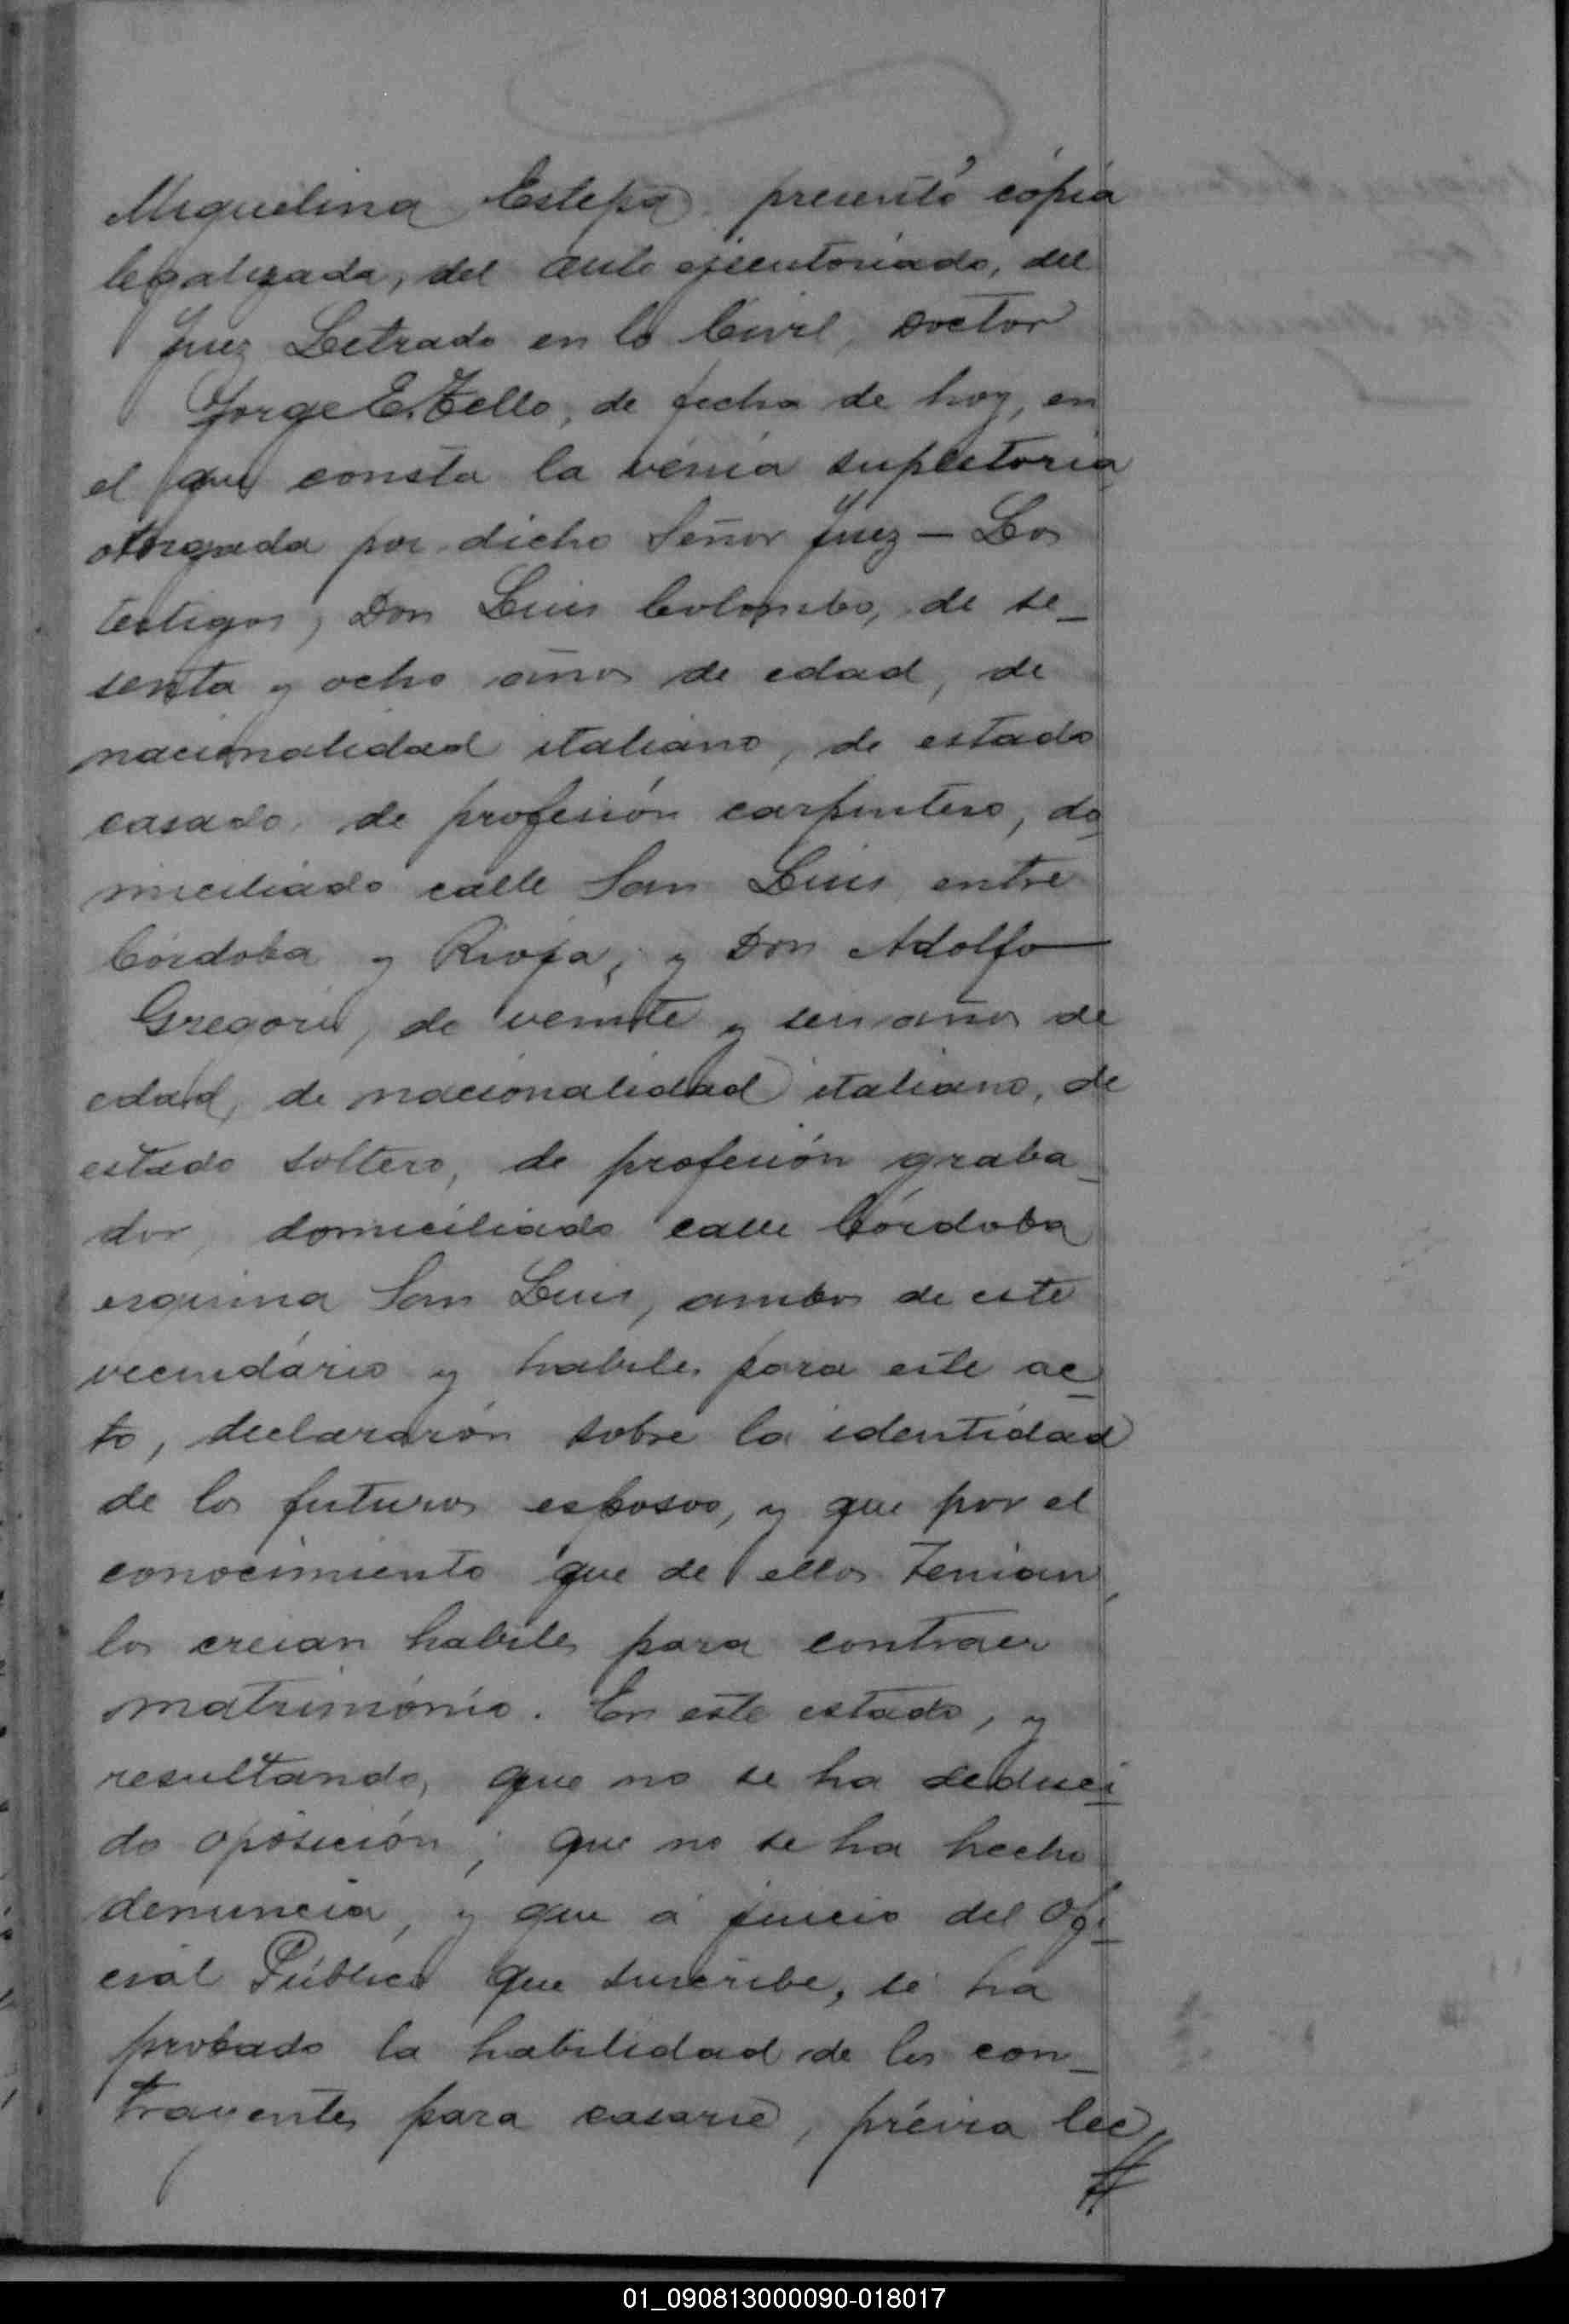 Miguelina Estepa presentó cópia
legalizada, del auto ejecutoriado, del
Juez Letrado en lo Civil, Doctor
Jorge E. Tello, de fecha de hoy, en
el que consta la vénia supletoria
otorgada por dicho Señor Juez — Los
testigos, Don Luis Colombo, de se_
senta y ocho años de edad, de
nacionalidad italiano, de estado
casado, de profesión carpintero, do_
miciliado calle San Luis entre
Córdoba y Rioja, y Don Adolfo
Gregori, de veinte y seis años de
edad, de nacionalidad italiano, de
estado soltero, de profesión graba_
dor, domiciliado calle Córdoba
esquina San Luis, ambos de este
vecindário y habiles para este ac_
to, declararón sobre la identidad
de los futuros esposos, y que por el
conocimiento que de ellos tenian,
los creian habiles para contraer
matrimónio. En este estado, y
resultando, que no se ha deduci_
do oposición; que no se ha hecho
denuncia, y que á juicio del Ofi_
cial Público que suscribe, se ha
probado la habilidad de los con_
trayentes para casarse, prévia lec
01_090813000090-018017